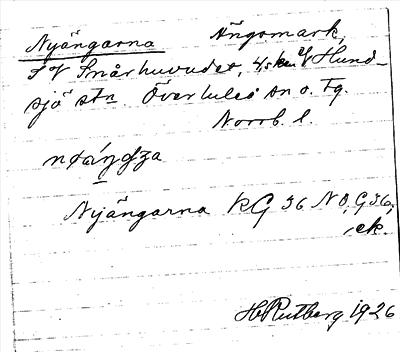 Nyängarna Ängsmark,
S of Snårhuvudet, 4,5 km V Hund-
sjö stn Överluleå sn o. Fg.
Norrb. l.
Nyängarna KG 36 NO, G 36,
ek.
H Rutberg 1926